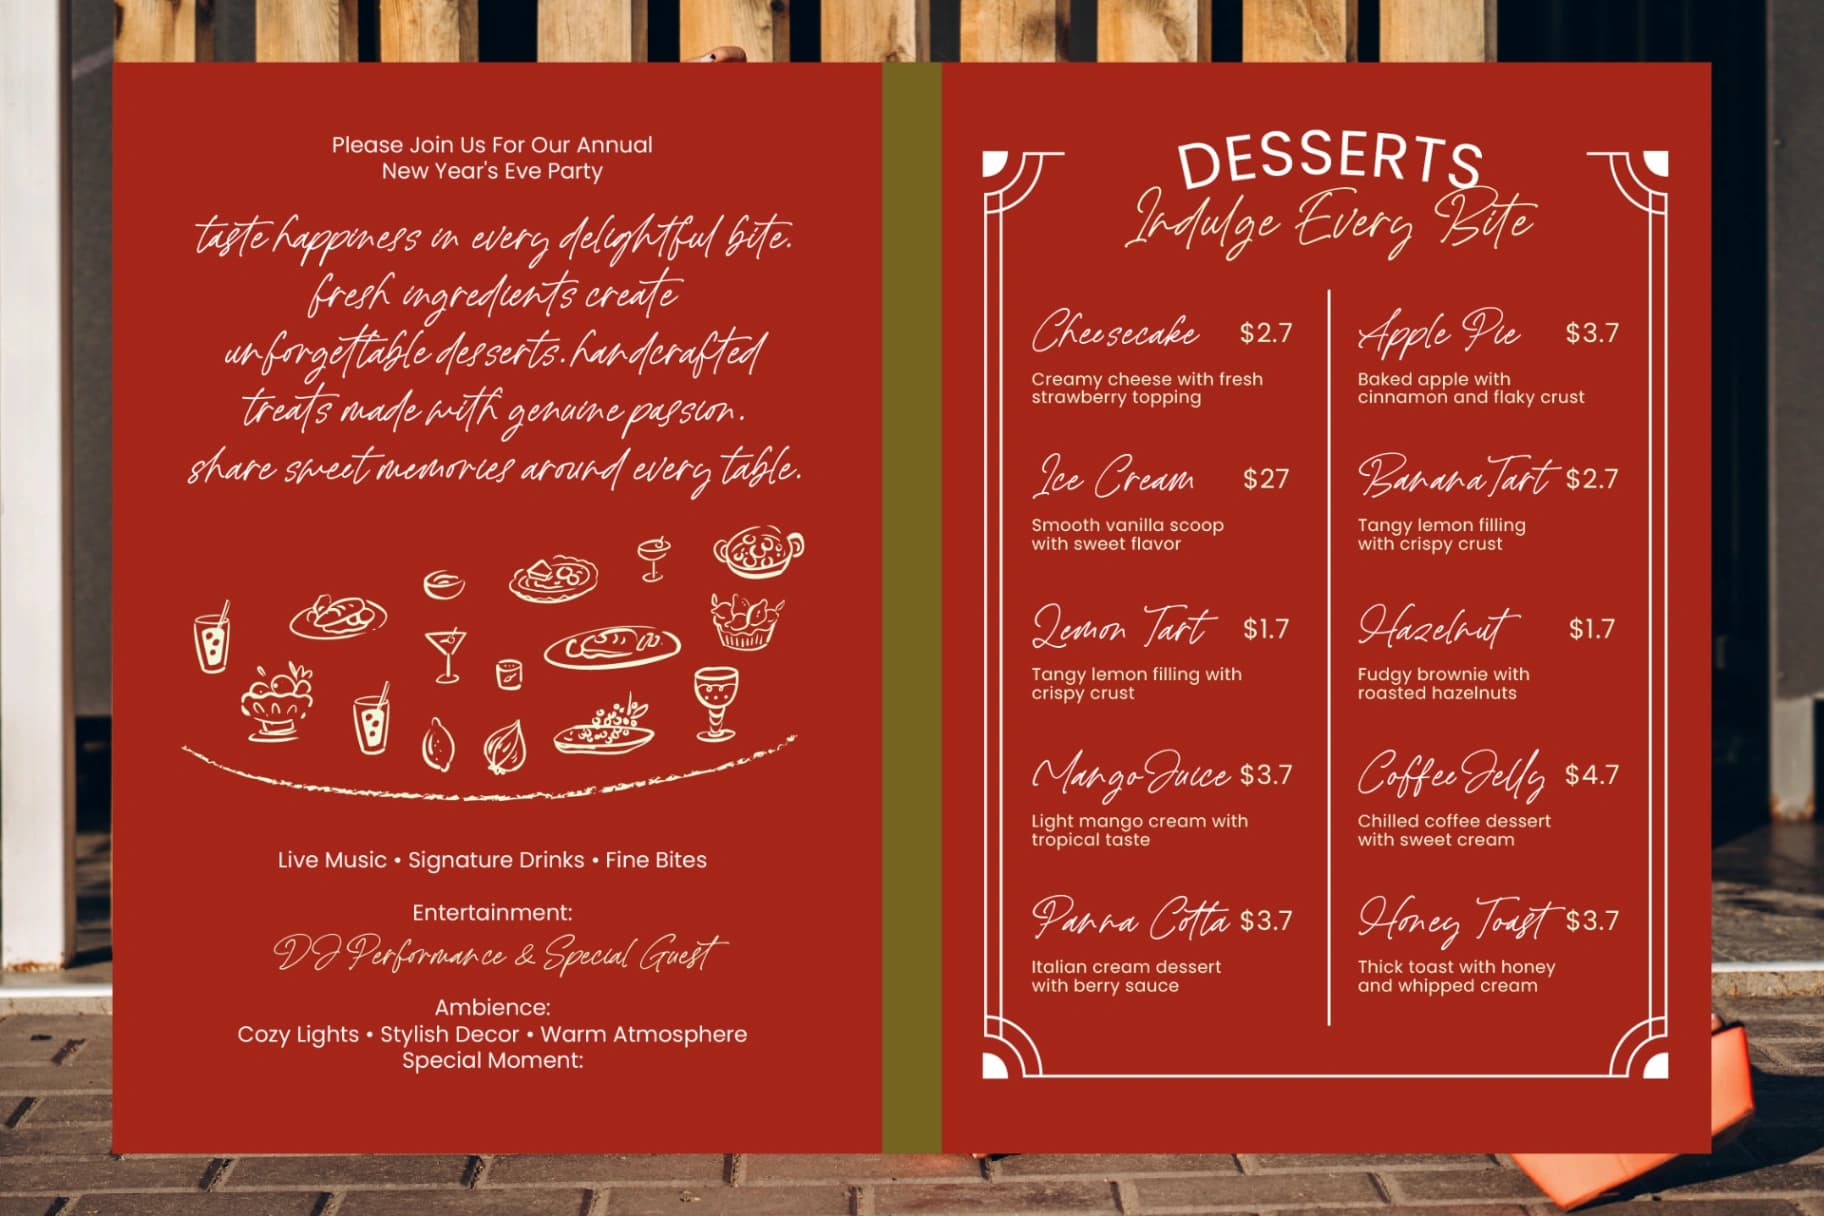 Please Join Us For Our Annual
New Year's Eve Party
taste happiness in every delightful bite.
fresh ingredients create
unforgettable desserts. handcrafted
treats made with genuine passion.
share sweet memories around every table.
Live Music • Signature Drinks • Fine Bites
Entertainment:
DJ Performance & Special Guest
Ambience:
Cozy Lights • Stylish Decor • Warm Atmosphere
Special Moment:
DESSERTS
Indulge Every Bite
Cheesecake $2.7
Creamy cheese with fresh
strawberry topping
Ice Cream $27
Smooth vanilla scoop
with sweet flavor
Lemon Tart $1.7
Tangy lemon filling with
crispy crust
Mango Juice $3.7
Light mango cream with
tropical taste
Panna Cotta $3.7
Italian cream dessert
with berry sauce
Apple Pie $3.7
Baked apple with
cinnamon and flaky crust
Banana Tart $2.7
Tangy lemon filling
with crispy crust
Hazelnut $1.7
Fudgy brownie with
roasted hazelnuts
Coffee Jelly $4.7
Chilled coffee dessert
with sweet cream
Honey Toast $3.7
Thick toast with honey
and whipped cream